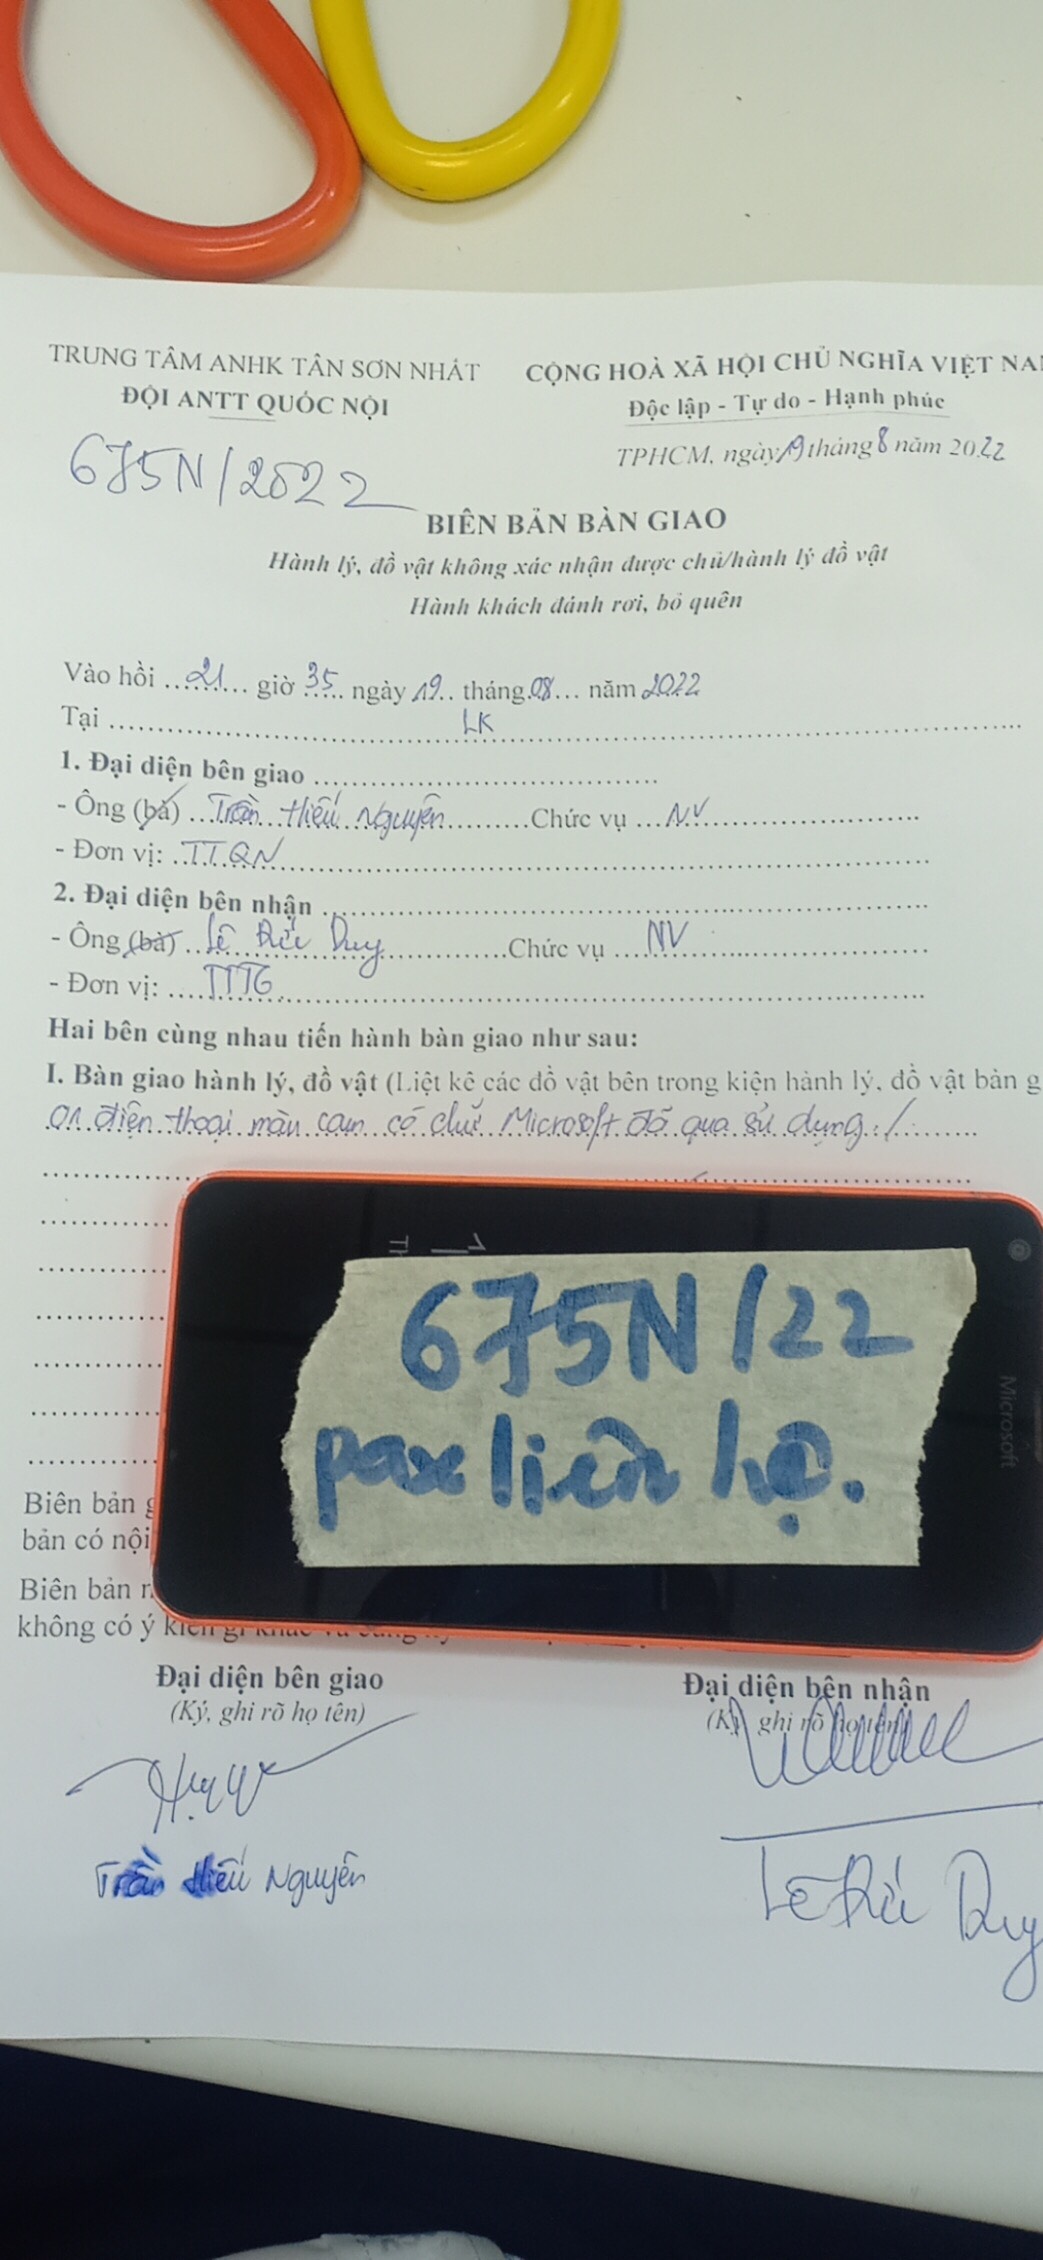 TRUNG TÂM ANHK TÂN SƠN NHẤT
ĐỘI ANTT QUỐC NỘI
CỘNG HOÀ XÃ HỘI CHỦ NGHĨA VIỆT NA
Độc lập - Tự do - Hạnh phúc
675N/2022
TPHCM, ngày 19 tháng 8 năm 2022
BIÊN BẢN BÀN GIAO
Hành lý, đồ vật không xác nhận được chủ/hành lý đồ vật
Hành khách đánh rơi, bỏ quên
Vào hồi 21 giờ 35 ngày 19 tháng 08 năm 2022
Tại LK
1. Đại diện bên giao
- Ông (bà) Trần Hiếu Nguyên Chức vụ NV
- Đơn vị: TTQN
2. Đại diện bên nhận
- Ông (bà) Lê Đức Duy Chức vụ NV
- Đơn vị: TTTG
Hai bên cùng nhau tiến hành bàn giao như sau:
I. Bàn giao hành lý, đồ vật (Liệt kê các đồ vật bên trong kiện hành lý, đồ vật bàn g
01 điện thoại màu cam có chữ Microsoft đã qua sử dụng./
675N/22
pax liên hệ.
Microsoft
Biên bản g
bản có nội
Biên bản
không có ý kiến gì khác và cùng
Đại diện bên giao
(Ký, ghi rõ họ tên)
Trần Hiếu Nguyên
Đại diện bên nhận
(Ký, ghi rõ họ tên)
Lê Đức Duy